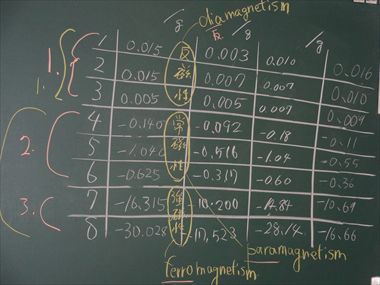 diamagnetism
/g /g /g
1. 1 0.015 反 0.003 0.010 0.016
1. 2 0.015 磁 0.007 0.007 0.010
3 0.005 性 0.005 0.007
4 -0.140 常 -0.092 -0.18 -0.11
2. 5 -1.046 磁 -0.516 -1.04 -0.55
6 -0.625 性 -0.317 -0.60 -0.36
3. 7 -16.315 強 -10.200 -14.84 -10.69
8 -30.028 磁性 -28.14 -16.66
paramagnetism
ferromagnetism